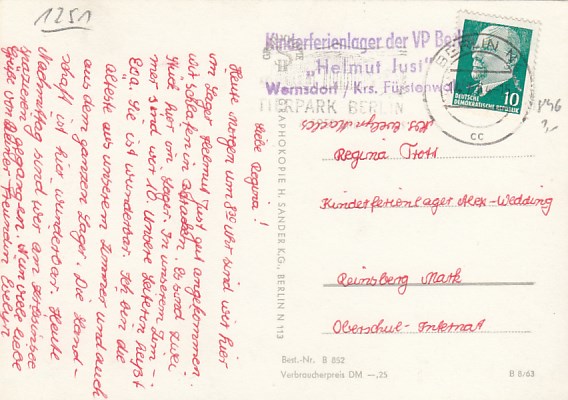 1251
Liebe Regina!
Heute morgen um 8³⁰ Uhr sind wir hier
im Lager Helmut Just gut angekommen.
Wir schlafen in Es sind zwei
Stück hier im Lager. In unserem Zim-
mer sind wir 10. Unsere Leiterin heißt
Eva. Sie ist wunderbar. Ich bin die
Älteste aus unserem Zimmer und auch
aus dem ganzen Lager. Die Land-
schaft ist hier wunderbar. Heute
Nachmittag sind wir am
spazieren gegangen. Nun viele liebe
Grüße von Deiner Freundin Evelyn
Kinderferienlager der VP
„Helmut Just"
Wernsdorf / Krs. Fürstenwal
TIERPARK BERLIN
BERLIN
cc
10
DEUTSCHE
DEMOKRATISCHE REPUBLIK
Abs. Evelyn
Regina Trott
Kinderferienlager Alex-Wedding
Reinsberg Mark
Oberschul-Internat
APHOKOPIE H. SANDER K.G., BERLIN N 113
Best.-Nr. B 852
Verbraucherpreis DM —,25
B 8/63